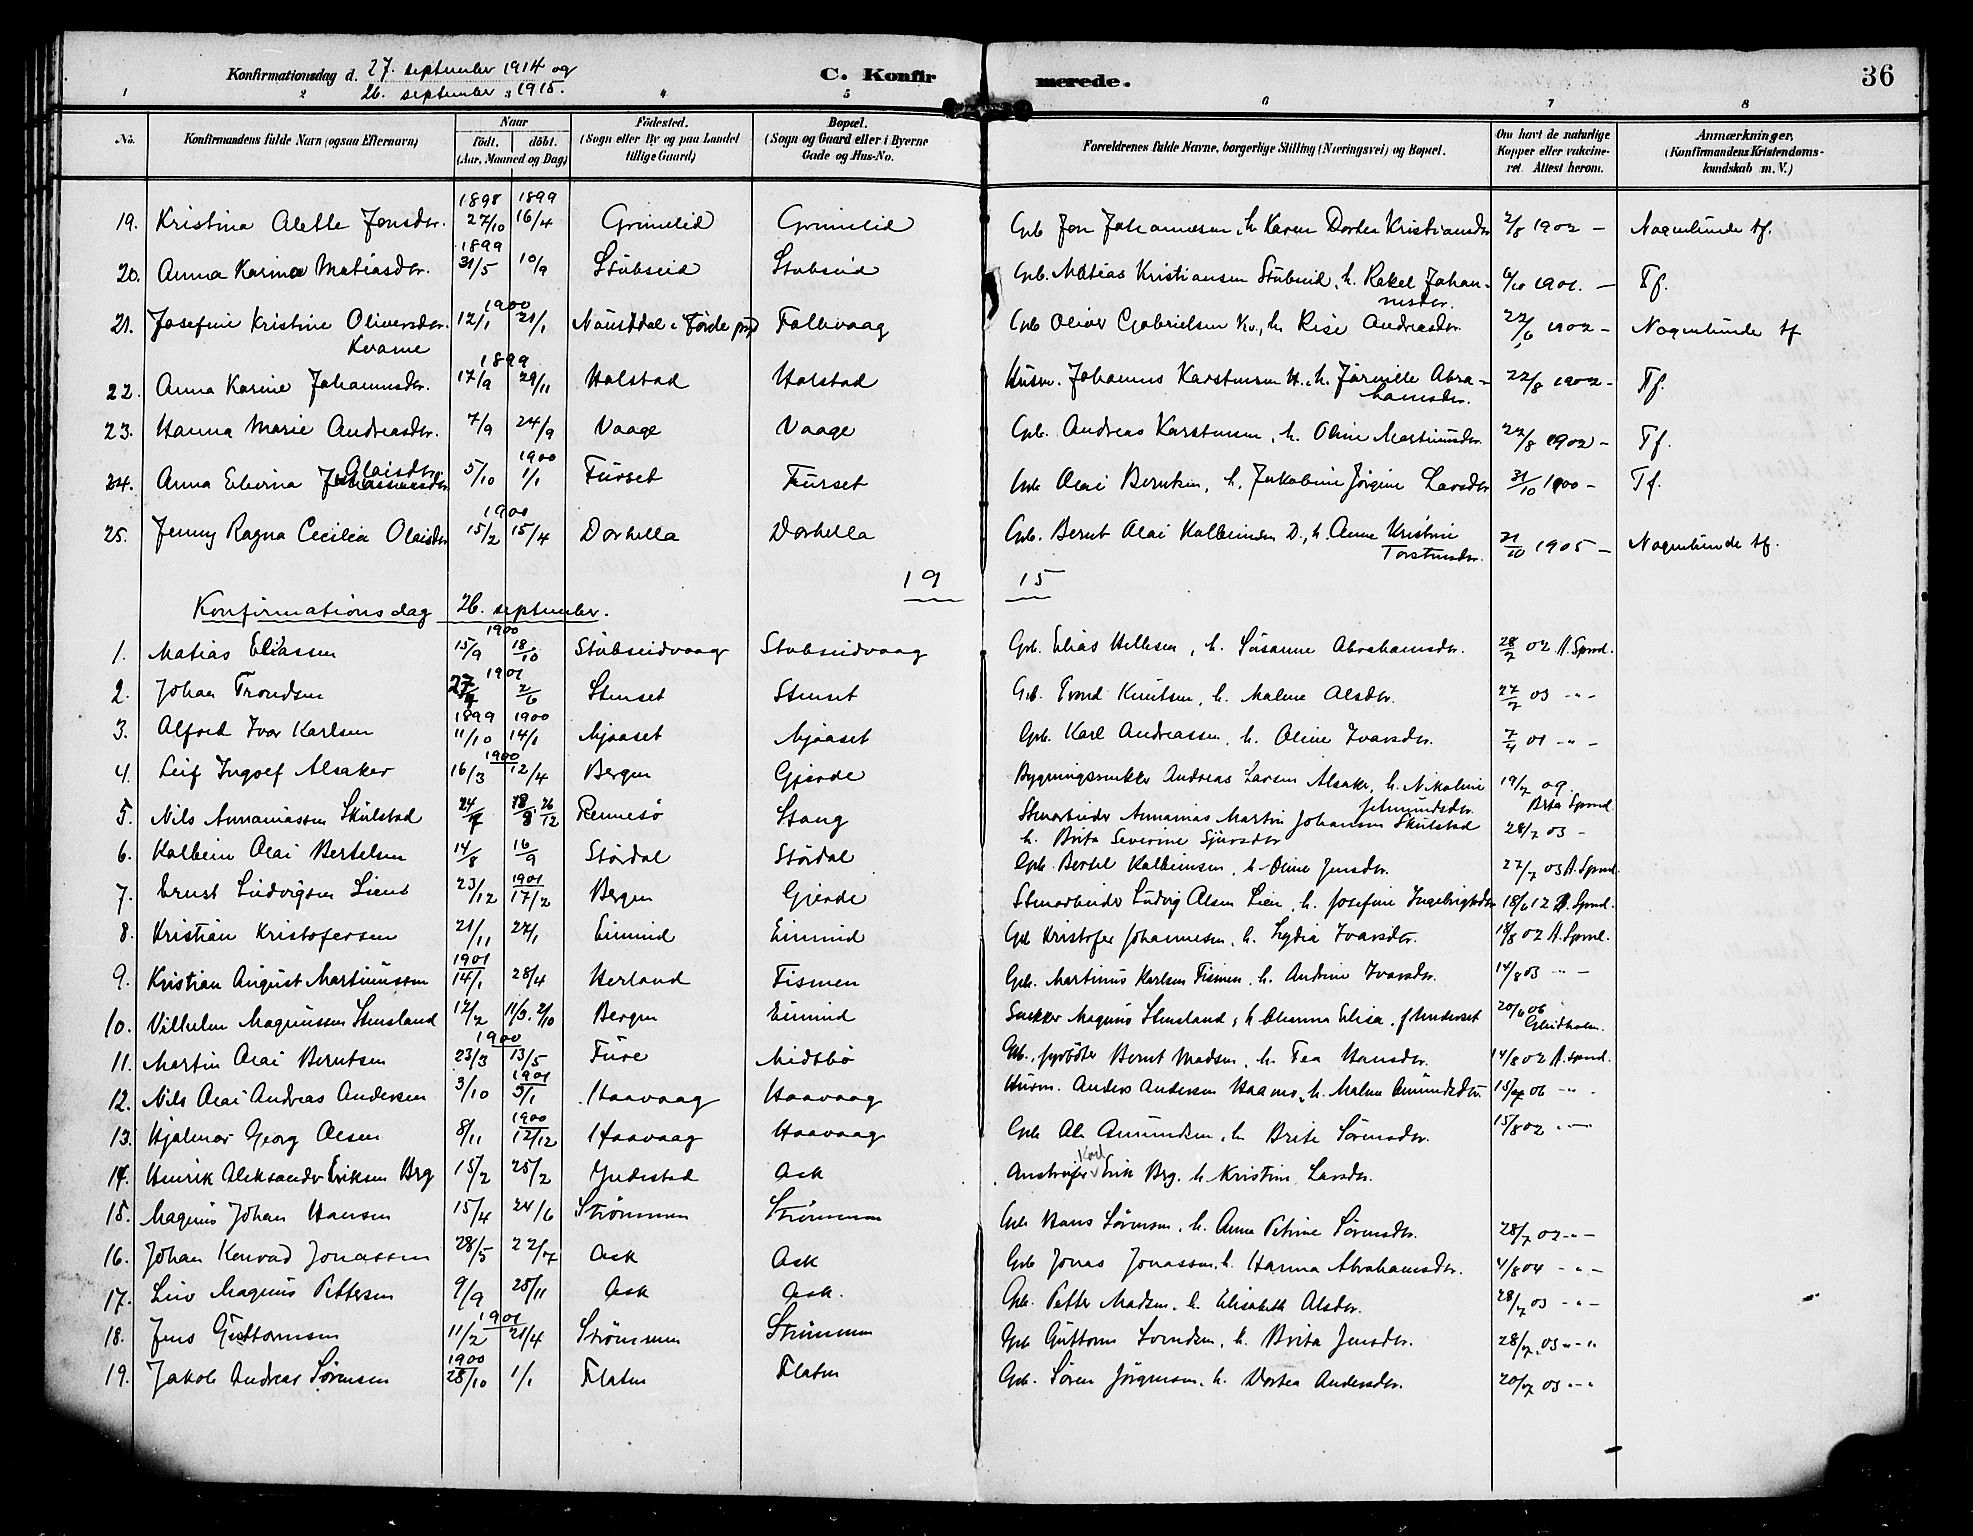 Konfirmationsdag d. 27. september 1914 og
26. september 1915.
C. Konfirmerede.
36
1 2 3 4 5 6 7 8
No.
Konfirmandens fulde Navn (ogsaa Efternavn)
Naar
født. døbt.
(Aar, Maaned og Dag)
Fødested.
(Sogn eller By og paa Landet tillige Gaard)
Bopæl.
(Sogn og Gaard eller i Byerne Gade og Hus-No.
Forældrenes fulde Navne, borgerlige Stilling (Næringsvei) og Bopæl.
Om havt de naturlige Kopper eller vakcineret. Attest herom.
Anmærkninger.
(Konfirmandens Kristendomskundskab m. V.)
1898 1899
19. Kristina Alette Jensdtr. 27/10 16/4 Grimelid Grimelid Grb Jen Johannesen, h. Karen Dortea Kristiansdtr 2/8 1902 – Nogenlunde tf.
1899
20. Anna Karina Matiasdtr. 31/5 10/9 Stubseid Stubseid Grb. Matias Kristiansen Stubseid, h. Rakel Johannesdtr. 6/10 1901. – Tf.
1900
21. Josefine Kristine Oliversdtr. Kvame 12/1 21/1 Naustdal i Førde prd Falkvaag Grb Oliver Gabrielsen Kv., h. Rise Andreasdtr. 22/6 1902 – Nogenlunde tf
1899
22. Anna Karine Johannesdtr. 17/9 29/11 Halstad Halstad Husm. Johannes Karstensen H., h. Jørnille Abrahamsdtr. 22/8 1902 – Tf.
23. Hanna Marie Andreasdtr. 7/9 24/9 Vaage Vaage Grb. Andreas Karstensen, h. Oline Martinusdtr. 22/8 1902 – Tf.
1900
24. Anna Elverina Olaisdtr. 5/10 1/1 Furset Furset Grb Olai Berntsen, h. Jakobine Jørgine Larsdtr 31/10 1900 – Tf.
1900
25. Jenny Ragna Cecilia Olaisdtr 15/2 15/4 Dorhella Dorhella Grb. Bernt Olai Kolbeinsen D., h. Anne Kristine Torstensdtr. 21/10 1905 – Nogenlunde tf.
19 15
Konfirmationsdag 26. september.
1900
1. Matias Eliassen 15/9 18/10 Stubseidvaag Stubseidvaag Grb. Elias Hellesen, h. Susanne Abrahamsdtr. 28/7 02 A. Sprd.
1901
2. Johan Trondsen 27/4 2/6 Stenset Stenset Grb. Trond Knutsen, h. Malene Alsdtr. 27/7 03 -"-
1899 1900
3. Alfred Ivar Karlsen 11/10 14/1 Njaaset Njaaset Grb. Karl Andreassen, h. Oline Ivarsdtr. 7/4 01 -"-
1900
4. Leif Ingolf Alsaker 16/3 12/4 Bergen Gjerde Bygningssnekker Andreas Larsen Alsaker, h. Nikoline Jetmundsdtr. 19/7 09. Brta Sprd.
5. Nils Annaniassen Skulstad 24/7 18/8. 26/12 Rennesø Stang Stenarbeider Annanias Martin Johansen Skulstad h. Brita Severine Sjursdtr 28/7 03 -
6. Kolbein Olai Bertelsen 14/8 16/9 Stordal Stordal Grb. Bertel Kolbeinsen, h. Oline Jensdtr. 27/7 03 A. Sprd.
1901
7. Ernst Ludvigsen Lien 23/12 17/2 Bergen Gjerde Stenarbeider Ludvig Alsen Lien, h. Josefine Ingebrigtsdtr 18/6 12 A. Sprd.
8. Kristian Kristofersen 21/11 27/1 Eimind Eimind Grb Kristofer Johannesen, h. Lydia Ivarsdtr. 18/8 02 A. Sprd.
1901
9. Kristian August Martinussen 14/1 28/4 Herland Tismen Grb. Martinus Karlsen Tismen, h. Andrine Ivarsdtr. 14/8 03 -"-
10. Vilhelm Magnussen Stensland 12/2 11/3. 2/10 Bergen Eimind Snekker Magnus Stensland, h. Johanna Elisa, f Underset 20/6 06
1900
11. Martin Olai Berntsen 23/3 13/5 Fure Midtbø Grb., fyrbøter Bernt Madsen, h. Tea Hansdtr. 14/8 02 A. sprd.
1901
12. Nils Olai Andreas Andersen 3/10 5/1 Haavaag Haavaag Husm. Anders Andersen Haavaag, h. Malene Amundsdtr. 15/7 06 -"-
1900
13. Hjalmar Georg Olsen 8/11 12/12 Haavaag Haavaag Grb Ole Amundsen, h. Brite Sørensdtr. 15/8 02 -"-
14. Henrik Aleksander Eriksen Brg 15/2 25/2 Indrestad Ask Anstrøifer Karl Erik Brg. h. Kristine Larsdtr.
15. Magnus Johan Hansen 15/4 24/6 Strømmen Strømmen Grb Hans Sørensen, h. Anne Petrine Sørensdtr. 28/7 02 -"-
16. Johan Konrad Jonassen 28/5 22/7 Ask Ask Grb Jonas Jonassen, h. Hanna Abrahamsdtr. 4/8 04 -"-
17. Leiv Magnus Pettersen 9/9 25/11 Ask Ask. Grb. Petter Madsen, h. Elisabeth Alsdtr. 28/7 03 -"-
1901
18. Jens Guttormsen 11/2 21/4 Strømmen Strømmen Grb Guttorm Svendsen, h. Brita Jensdtr. 28/7 03 -"-
1900
19. Jakob Andreas Sørensen 28/10 1/1 Flaten Flaten Grb. Søren Jørgensen, h. Dortea Andersdtr. 20/7 03 -"-